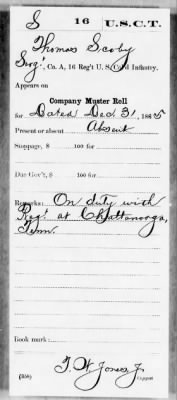 S 16 U.S.C.T.
Thomas Scoby
Serg't, Co. A, 16 Reg't U. S. Col'd Infantry.
Appears on
Company Muster Roll
for Dated Dec. 31, 1865
Present or absent Absent
Stoppage, $ 100 for
Due Gov't, $ 100 for
Remarks: On duty with
Reg't at Chattanooga,
Tenn.
Book mark:
(358) Copyist